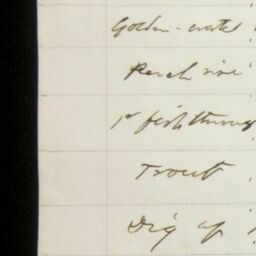 Golden-crested
Perch rise
fish through
Trout
Dig up